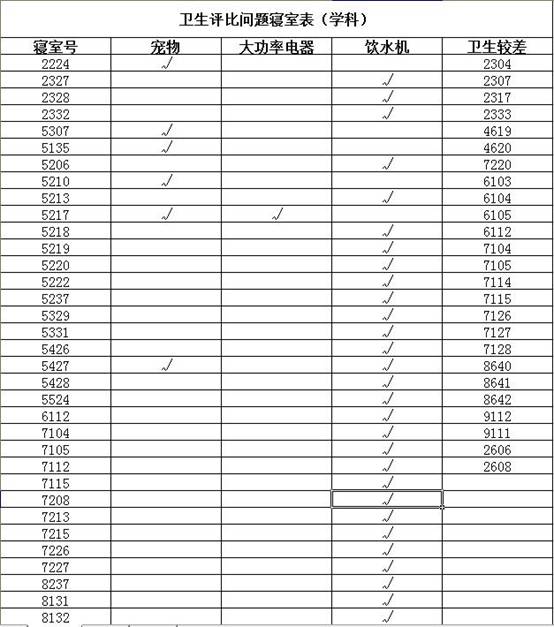 卫生评比问题寝室表（学科）
寝室号 宠物 大功率电器 饮水机 卫生较差
2224 √ 2304
2327 √ 2307
2328 √ 2317
2332 √ 2333
5307 √ 4619
5135 √ 4620
5206 √ 7220
5210 √ 6103
5213 √ 6104
5217 √ √ 6105
5218 √ 6112
5219 √ 7104
5220 √ 7105
5222 √ 7114
5237 √ 7115
5329 √ 7126
5331 √ 7127
5426 √ 7128
5427 √ √ 8640
5428 √ 8641
5524 √ 8642
6112 √ 9112
7104 √ 9111
7105 √ 2606
7112 √ 2608
7115 √
7208 √
7213 √
7215 √
7226 √
7227 √
8237 √
8131 √
8132 √